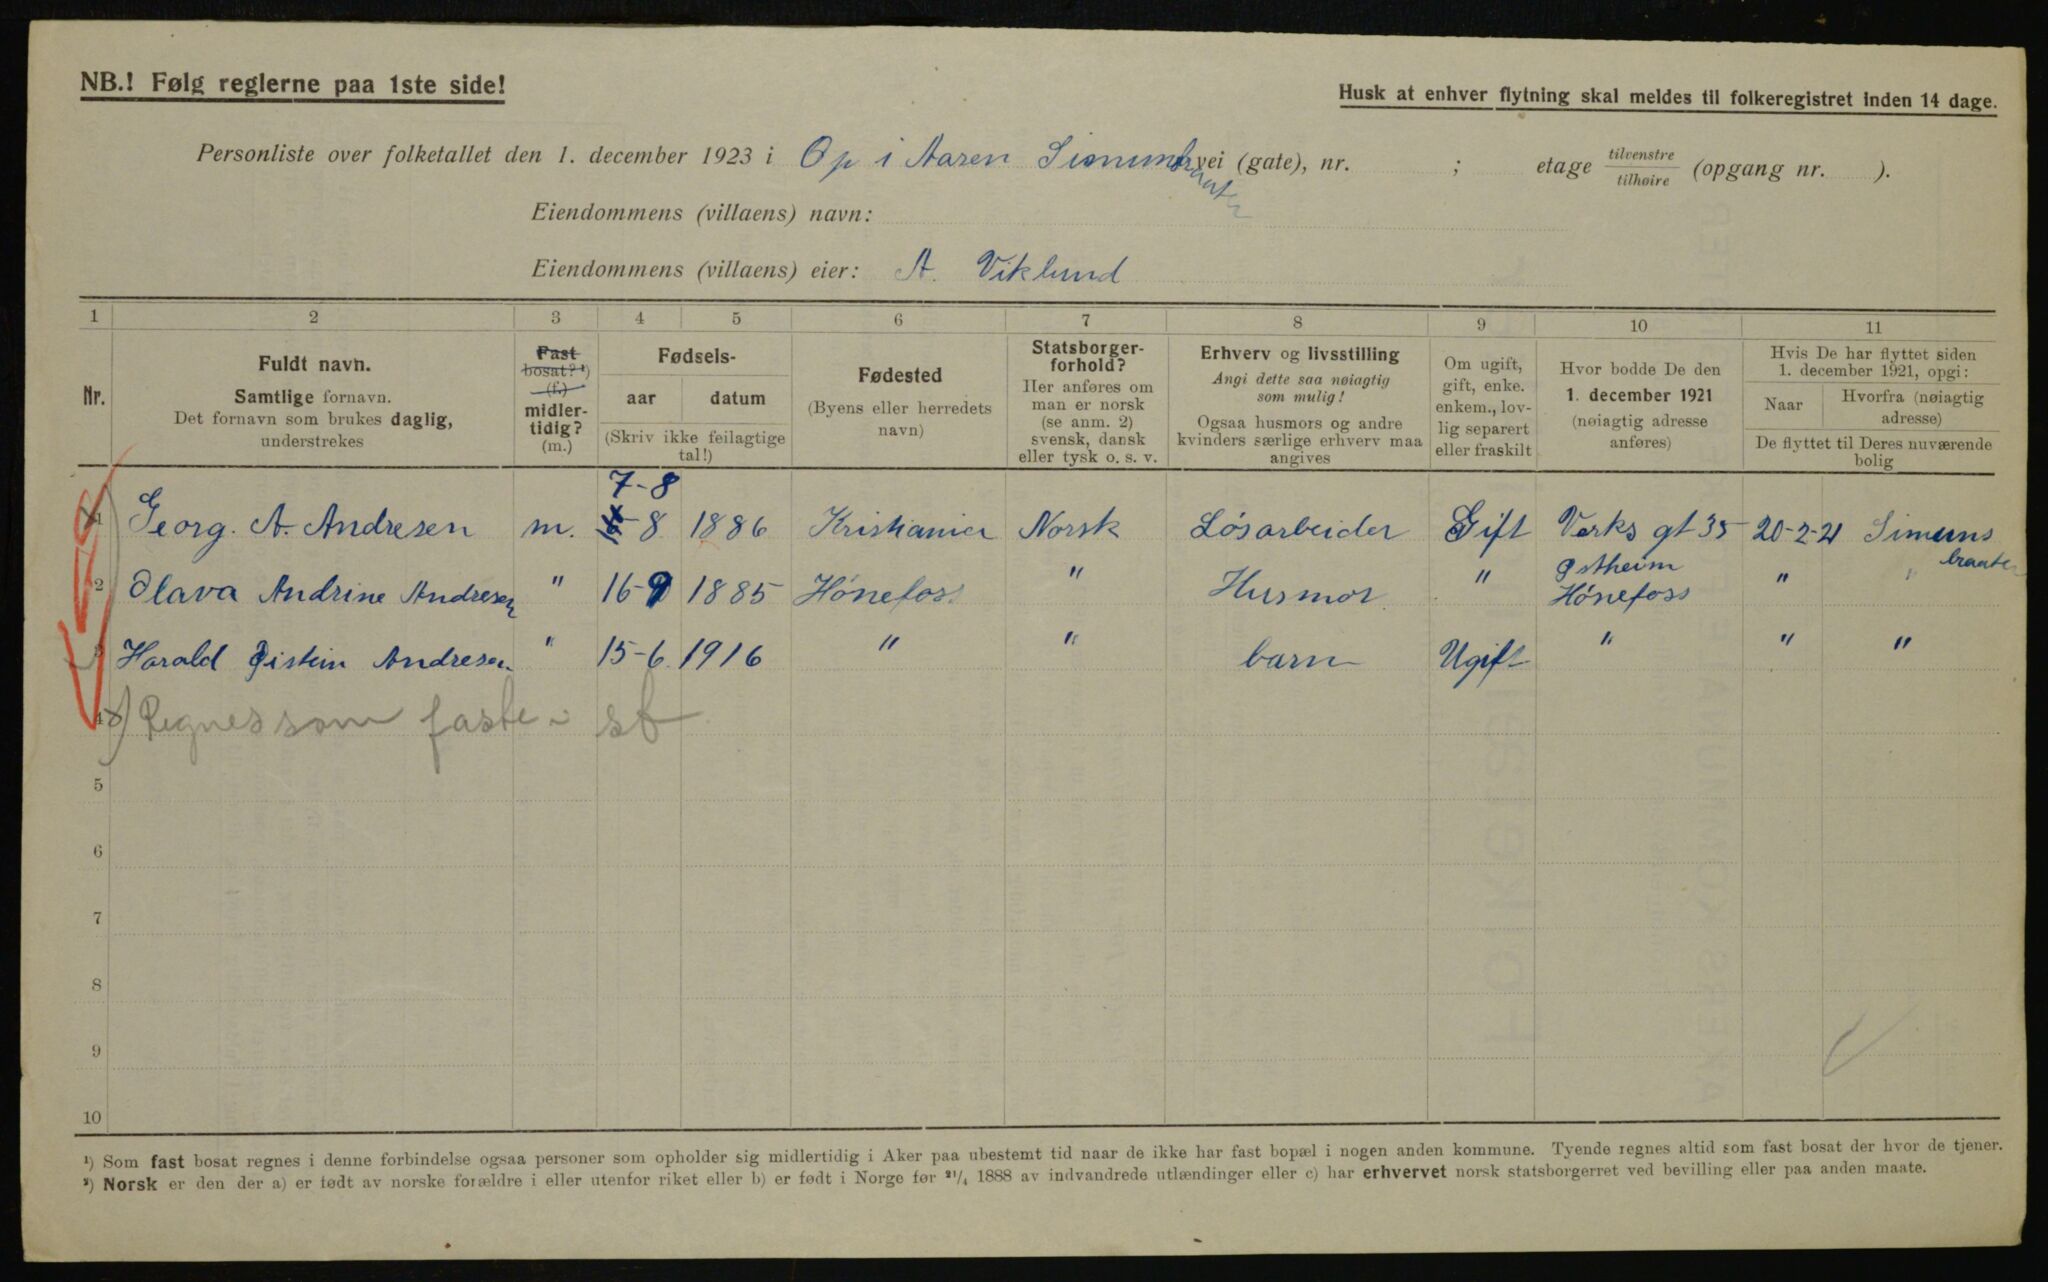 NB.! Følg reglerne paa 1ste side!
Husk at enhver flytning skal meldes til folkeregistret inden 14 dage.
Personliste over folketallet den 1. december 1923 i Op i Aaren Simunsbraaten vei (gate), nr. ; etage tilvenstre/tilhøire (opgang nr. ).
Eiendommens (villaens) navn:
Eiendommens (villaens) eier: A. Viklund
1 2 3 4 5 6 7 8 9 10 11
Nr.
Fuldt navn.
Samtlige fornavn.
Det fornavn som brukes daglig,
understrekes
Fast
bosat? ¹)
(f.)
midler-
tidig?
(m.)
Fødsels-
aar datum
(Skriv ikke feilagtige
tal!)
Fødested
(Byens eller herredets
navn)
Statsborger-
forhold?
Her anføres om
man er norsk
(se anm. 2)
svensk, dansk
eller tysk o. s. v.
Erhverv og livsstilling
Angi dette saa nøiagtig
som mulig!
Ogsaa husmors og andre
kvinders særlige erhverv maa
angives
Om ugift,
gift, enke.
enkem., lov-
lig separert
eller fraskilt
Hvor bodde De den
1. december 1921
(nøiagtig adresse
anføres)
Hvis De har flyttet siden
1. december 1921, opgi:
Naar
Hvorfra (nøiagtig
adresse)
De flyttet til Deres nuværende
bolig
7-8
1 Georg. A. Andresen m. 6-8 1886 Kristiania Norsk Løsarbeider Gift Verks gt 35 20-2-21 Simuns
braaten
Østheim
2 Olava Andrine Andresen " 16-9 1885 Hønefoss " Husmor " Hønefoss " "
3 Harald Øistein Andresen " 15-6 1916 " " barn Ugift " " "
4 x) Regnes som faste
5
6
7
8
9
10
¹) Som fast bosat regnes i denne forbindelse ogsaa personer som opholder sig midlertidig i Aker paa ubestemt tid naar de ikke har fast bopæl i nogen anden kommune. Tyende regnes altid som fast bosat der hvor de tjener.
²) Norsk er den der a) er født av norske forældre i eller utenfor riket eller b) er født i Norge før ²¹/₄ 1888 av indvandrede utlændinger eller c) har erhvervet norsk statsborgerret ved bevilling eller paa anden maate.